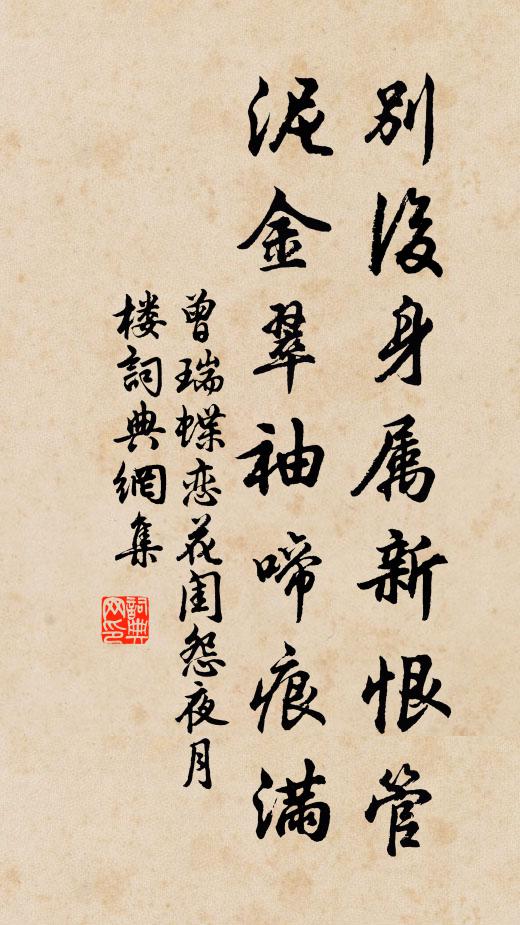 別後身属新恨管
泥金翠袖啼痕满
曾瑞蝶恋花闺怨夜月
楼詞典網集
詞典网印